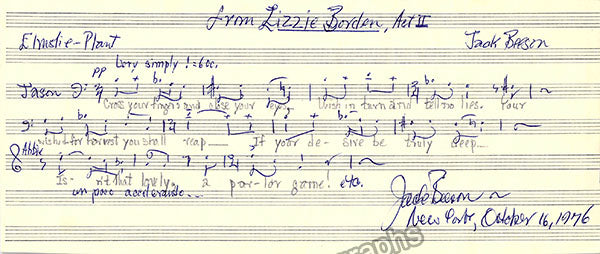 from Lizzie Borden, Act II
Elmslie-Plant
Jack Beeson
pp Very simply ♩=60c.
Jason Cross your fingers and close your eyes. Wish in turn and tell no lies. Your
wish for harvest you shall reap— If your de-sire be truly deep...
Abbie
Is-n't that lovely, a par-lor game! etc.
un poco accelerando...
Jack Beeson
New York, October 16, 1976
graphs